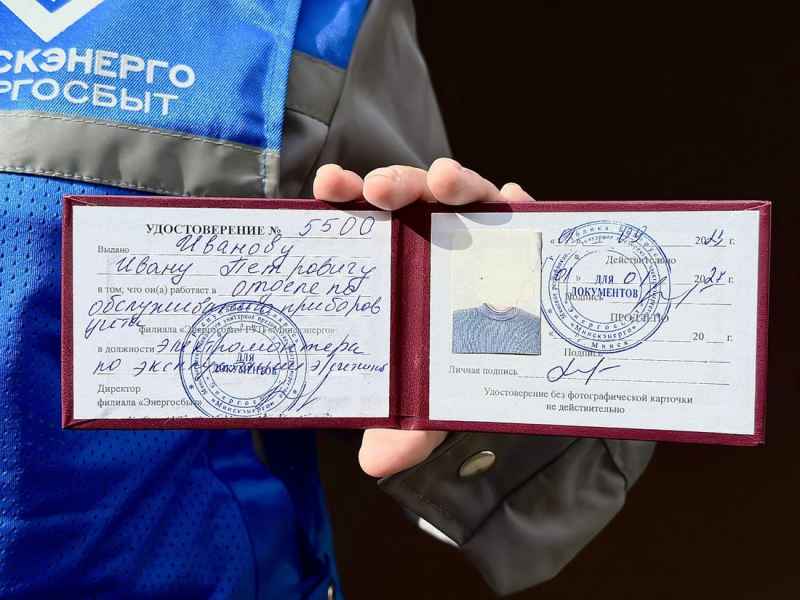 СКЭНЕРГО
РГОСБЫТ
УДОСТОВЕРЕНИЕ № 5500
Выдано Иванову
Ивану Петровичу
в том, что он(а) работает в отделе по
обслуживанию приборов
учета
филиала «Энергосбыт» РУП «Минскэнерго»
в должности электромонтера
по эксплуатации
Директор
филиала «Энергосбыт»
ДЛЯ
ДОКУМЕНТОВ
«Минскэнерго»
20 г.
Действительно
20 г.
Подпись
ДЛЯ
ДОКУМЕНТОВ
«Минскэнерго»
г. Минск
20 г.
Подпись
Личная подпись
Удостоверение без фотографической карточки
не действительно